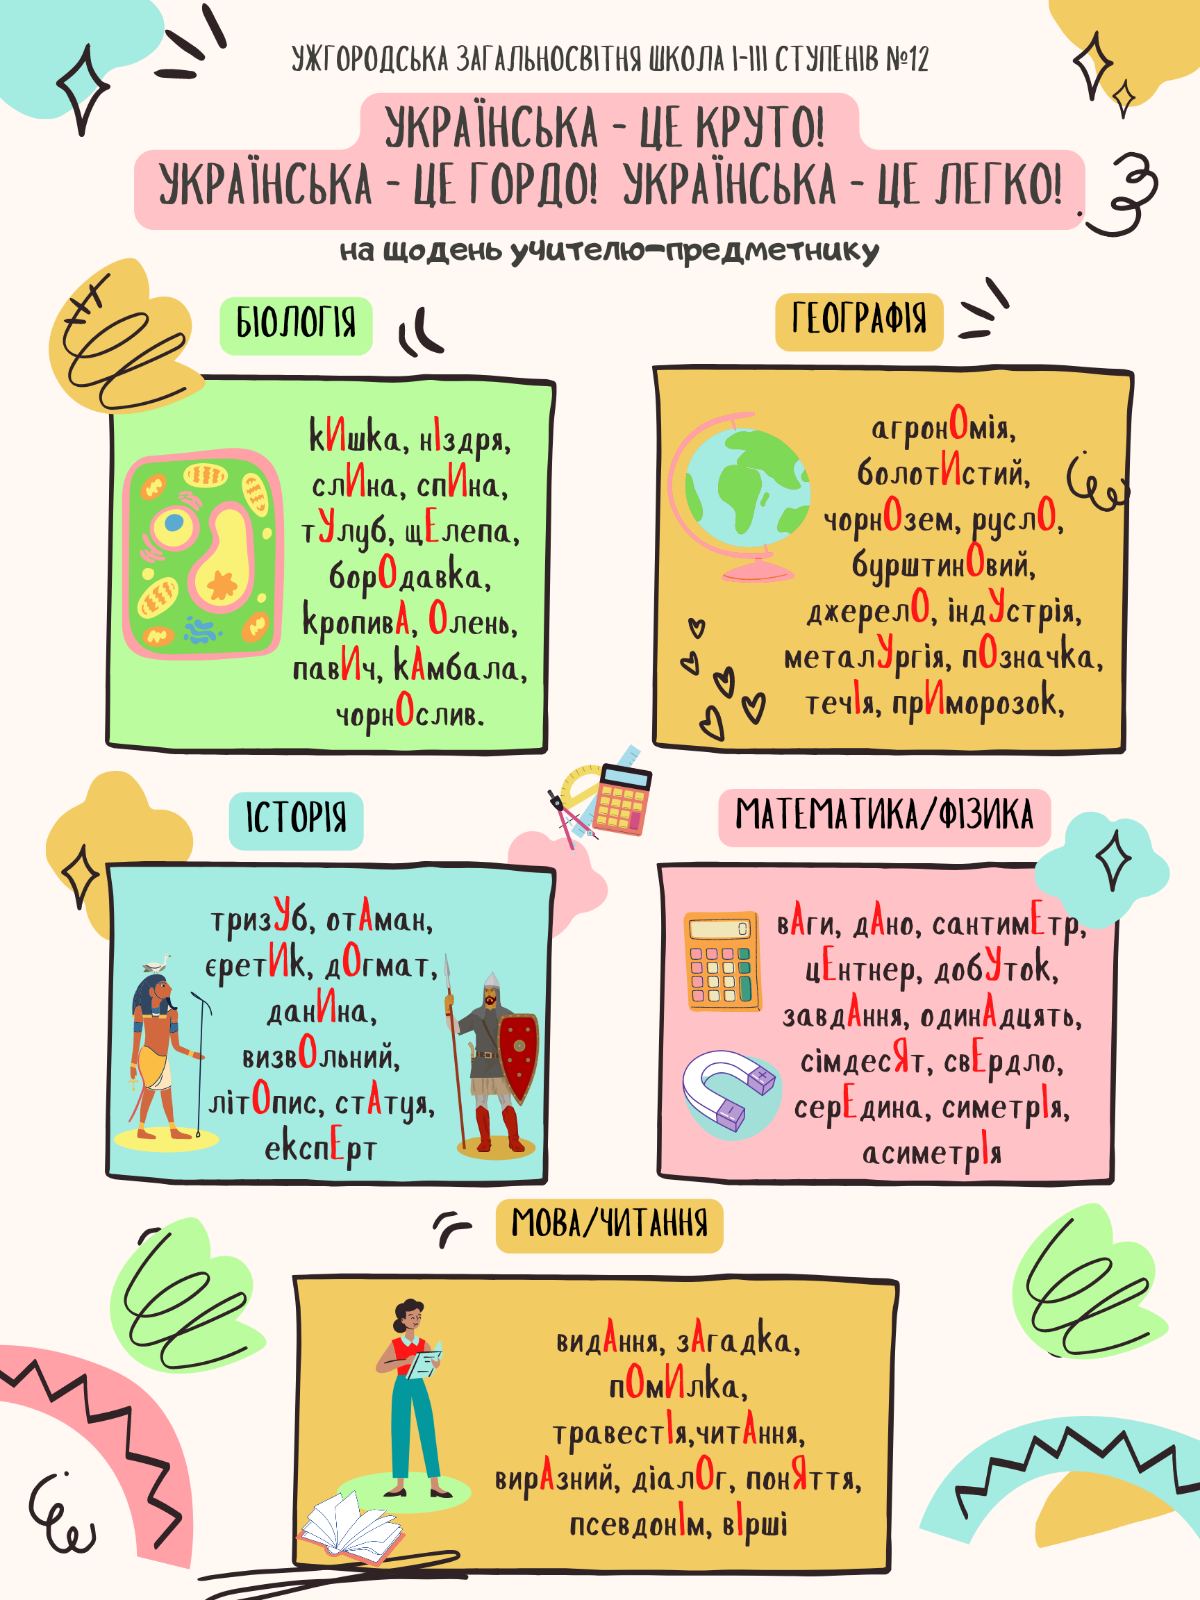 УЖГОРОДСЬКА ЗАГАЛЬНОСВІТНЯ ШКОЛА І-ІІІ СТУПЕНІВ №12
УКРАЇНСЬКА - ЦЕ КРУТО!
УКРАЇНСЬКА - ЦЕ ГОРДО! УКРАЇНСЬКА - ЦЕ ЛЕГКО!
на щодень учителю-предметнику
БІОЛОГІЯ
кИшка, нІздря,
слИна, спИна,
тУлуб, щЕлепа,
борОдавка,
кропивА, Олень,
павИч, кАмбала,
чорнОслив.
ГЕОГРАФІЯ
агронОмія,
болотИстий,
чорнОзем, руслО,
бурштинОвий,
джерелО, індУстрія,
металУргія, пОзначка,
течІя, прИморозок,
ІСТОРІЯ
тризУб, отАман,
єретИк, дОгмат,
данИна,
визвОльний,
літОпис, стАтуя,
експЕрт
МАТЕМАТИКА/ФІЗИКА
0
вАги, дАно, сантимЕтр,
цЕнтнер, добУток,
завдАння, одинАдцять,
сімдесЯт, свЕрдло,
серЕдина, симетрІя,
асиметрІя
МОВА/ЧИТАННЯ
видАння, зАгадка,
пОмИлка,
травестІя,читАння,
вирАзний, діалОг, понЯття,
псевдонІм, вІрші